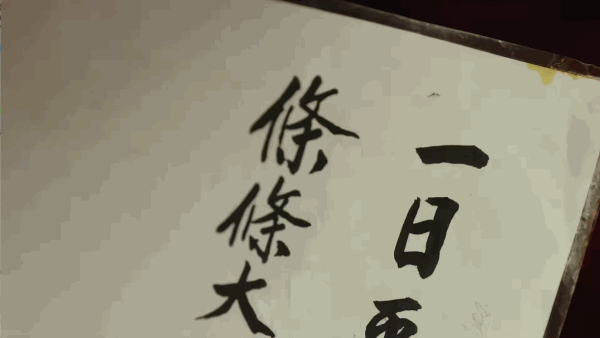 一日
條條大